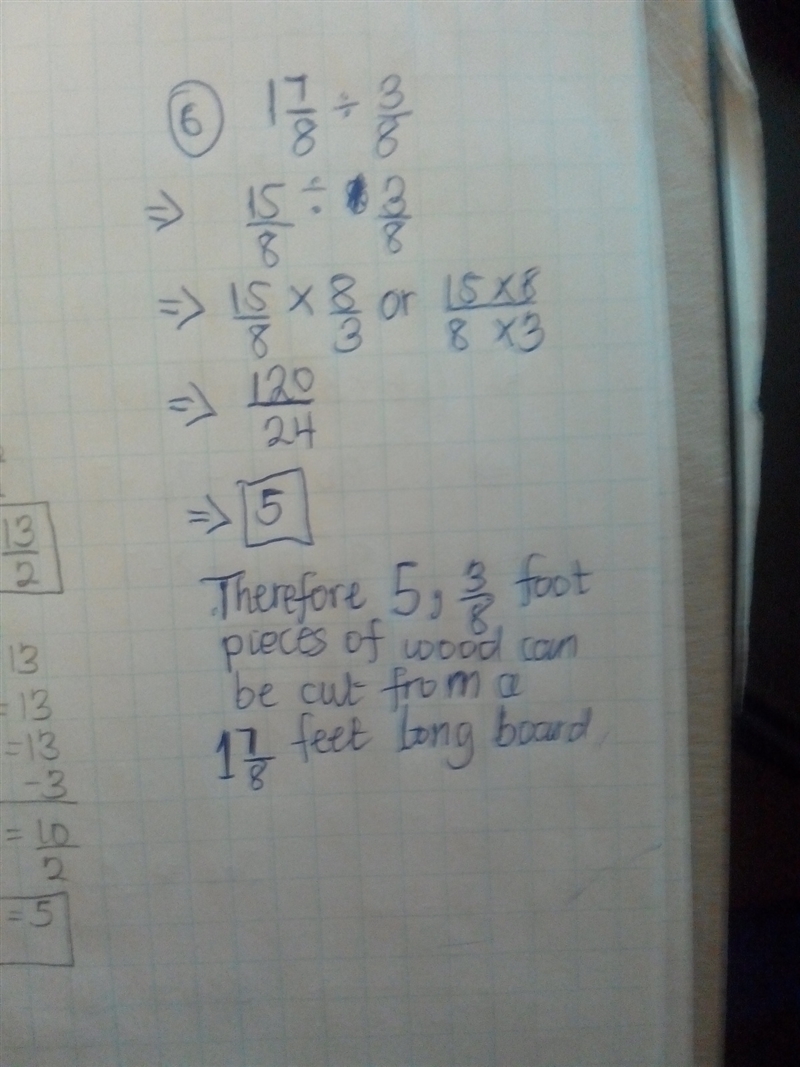 6 1 7/8 ÷ 3/8
⇒ 15/8 ÷ 3/8
⇒ 15/8 × 8/3 or 15×8/8×3
⇒ 120/24
⇒ 5
Therefore 5, 3/8 foot
pieces of wood can
be cut from a
1 7/8 feet long board.
13/2
13
=13
=13
-3
=10/2
=5